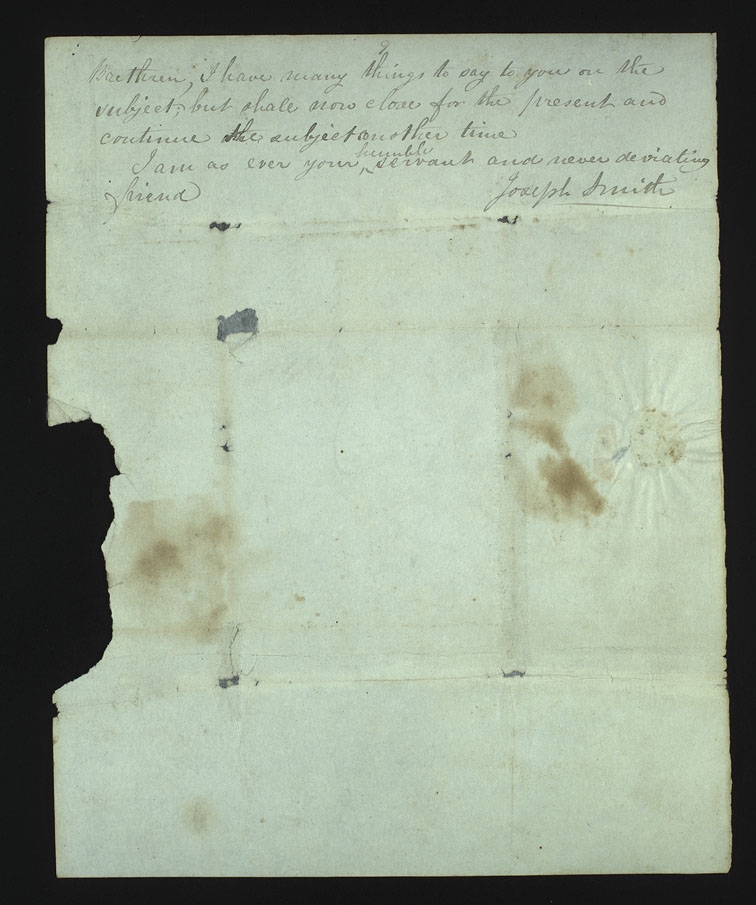 9
Brethren, I have many things to say to you on the
subject; but shall now close for the present and
continue the subject another time
I am as ever your humble servant and never deviating
friend
Joseph Smith